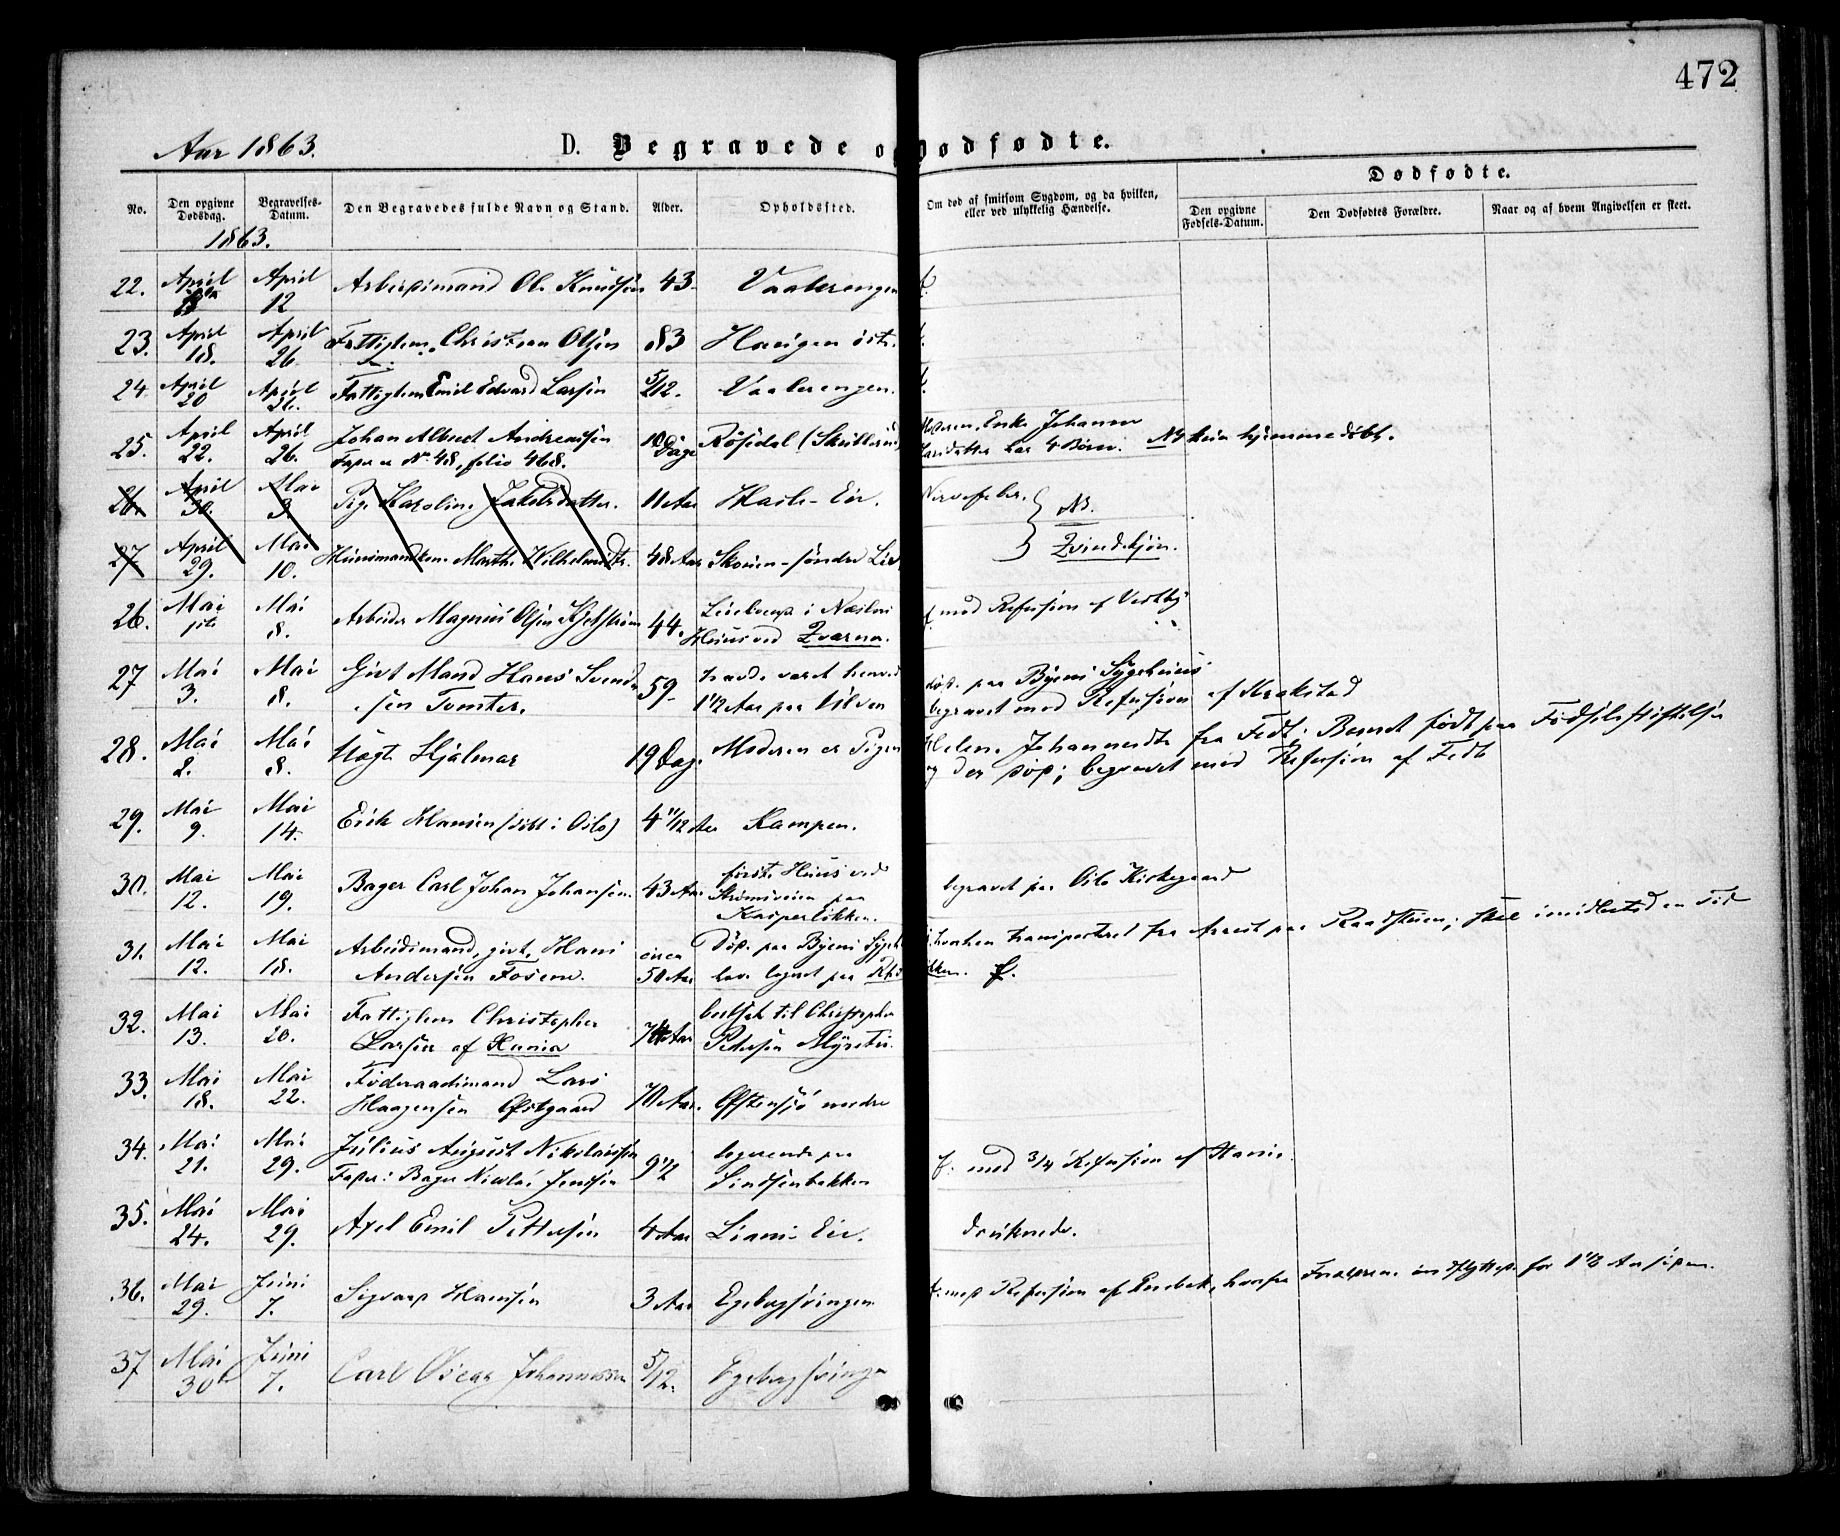 472
Aar 1863.
D. Begravede o
Dodfødte.
Dødfødte.
No.
Den opgivne Dødsdag.
Begravelses-Datum.
Den Begravedes fulde Navn og Stand.
Alder.
Opholdssted.
Om død af smitsom Sygdom, og da hvilken,
eller ved ulykkelig Hændelse.
Den opgivne Fødsels-Datum.
Den Dødfødtes Forældre.
Naar og af hvem Angivelsen er skeet.
1863.
22. April April 12 Arbeidsmand Ole Knudsen 43 Vaalerengen f.
23. April 18. April 26 Fattiglem Christian Olsen 83 Haugen østr.
24 April 20 April 26. Fattiglem Emil Edvard Larsen 5/12. Vaalerengen.
25. April 22. April 26. Johan Albert Andreassen 10 Dage Rosedal
Faper er No 48, folio 468.
Enke Johanne
har 4 Børn. NB kun hjemmedøbt.
26. April 30. Mai 3. Pige Karoline Jakobsdatter. 11 Aar Hasle-Eie. Nervefeber.
NB.
27 April 29. Mai 10. Huusmandskone Marthe Wilhelmsdtr. 48 Aar Skøien-søndre Eie
Qvindekjøn.
26. Mai 1ste Mai 8. Arbeider Magnus Olsen 44.
Huus ved Qværner.
f. med Refusion af Vestby
27 Mai 3. Mai 8. Gift Mand Hans Svend-
sen Tomter. 59 havde været henved
1 1/2 Aar paa
døde paa Byens Sygehuus
begravet med Refusion af Krakstad
28. Mai 2. Mai 8. Uægte Hjalmar 19 Dag. Moderen er Pigen
Helene Johannesdtr fra Fedt; Barnet født paa Fødselsstiftelsen
og der døpt; begravet med Refusion af Fedt
29. Mai 9. Mai 14. Erik Hansen (født i Oslo) 4 11/12 Aar Kampen.
30. Mai 12. Mai 19. Bager Carl Johan Johansen. 43 Aar
første Huus ved
Strømsveien paa
Kasperløkken.
begravet paa Oslo Kirkegaard
31. Mai 12. Mai 18. Arbeidsmand, gift, Hans
Andersen Fosem. circa
50 Aar
Døde paa Byens Sygeh
transporteret fra Arrest paa Raadstuen; skal imidlertid en Tid
have logeret paa
løkken. f.
32. Mai 13. Mai 20. Fattiglem Christopher
Larsen af Xania 74 Aar
bortsat til Christopher
Petersen Myrer.
33. Mai 18. Mai 22. Føderaadsmand Lars
Haagensen Østgaard 70 Aar. Østensjø nordre
34. Mai 21. Mai 29. Julius August Nikolaissen
Faper: Bager Nicolai Jenssen 9 1/2 logerende paa
Simsenbakken
f. med 3/4 Refusion af
35. Mai 24. Mai 29. Axel Emil Pettersen 4 Aar Lians Eie. druknede.
36. Mai 29. Juni 7. Sigvarp Hansen 3 Aar Egebergsvingen
f. mep Refusion af Enebak, hvorfra Foræeldrene indflyttep. for 1 1/2 Aar siden.
37 Mai 30 Juni 7. Carl Oscar Johannessen 5/12. Egebergsvingen